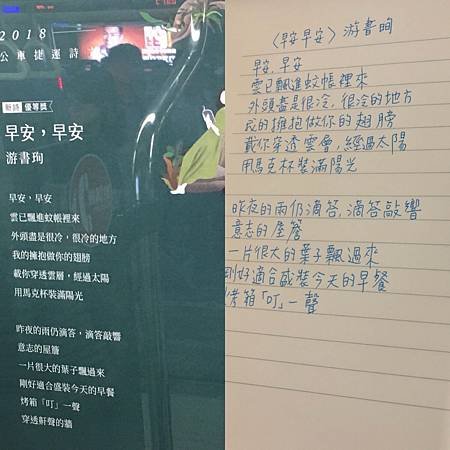 2018
公車捷運詩
新詩 優等獎
早安，早安
游書珣
早安，早安
雲已飄進蚊帳裡來
外頭盡是很冷，很冷的地方
我的擁抱做你的翅膀
載你穿透雲層，經過太陽
用馬克杯裝滿陽光
昨夜的雨仍滴答，滴答敲響
意志的屋簷
一片很大的葉子飄過來
剛好適合盛裝今天的早餐
烤箱「叮」一聲
穿透鼾聲的牆
〈早安早安〉游書珣
早安，早安
雲已飄進蚊帳裡來
外頭盡是很冷，很冷的地方
我的擁抱做你的翅膀
載你穿透雲層，經過太陽
用馬克杯裝滿陽光
昨夜的雨仍滴答，滴答敲響
意志的屋簷
一片很大的葉子飄過來
剛好適合盛裝今天的早餐
烤箱「叮」一聲